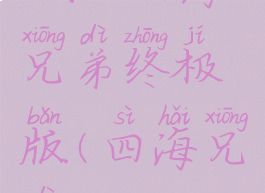 xiōng dì zhōng jí
兄弟终极
bǎn sì hǎi xiōng
版(四海兄